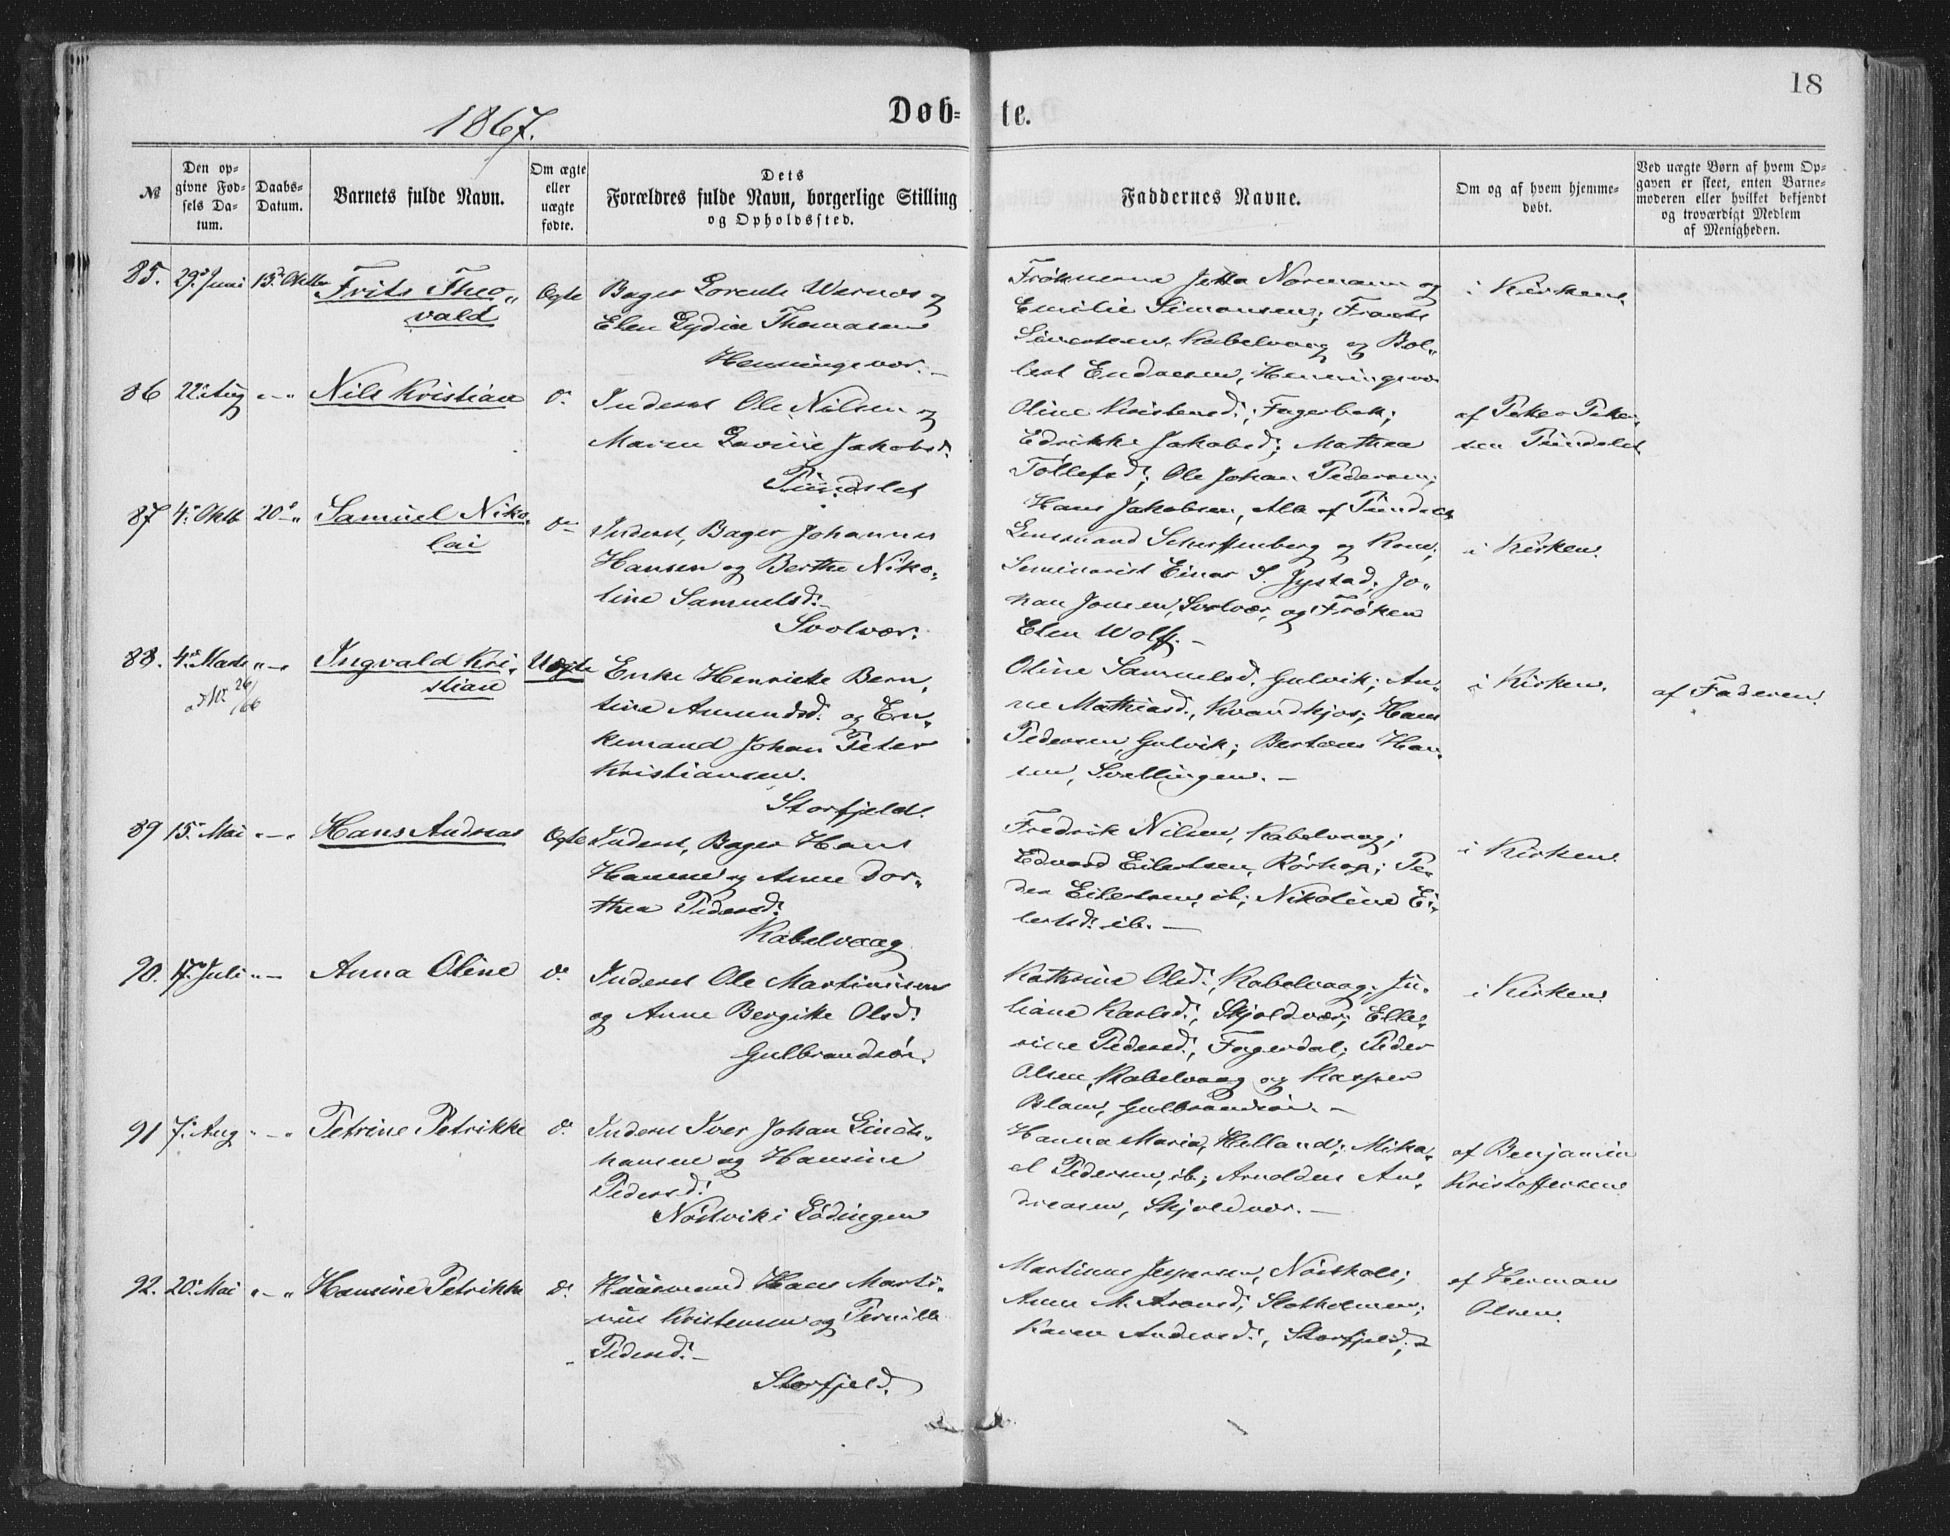 18
1867.
Døb- te.
№
Den op-
givne Fød-
sels Da-
tum.
Daabs-
Datum.
Barnets fulde Navn.
Om ægte
eller
uægte
fødte.
Dets
Forældres fulde Navn, borgerlige Stilling
og Opholdssted.
Faddernes Navne.
Om og af hvem hjemme-
døbt.
Ved uægte Børn af hvem Op-
gaven er skeet, enten Barne-
moderen eller hvilket bekjendt
og troværdigt Medlem
af Menigheden.
85. 29. Juni 13. Oktbr
Frits Theo-
vald
Ægte
Bager Lorents og
Elen Lydia Thomasen
Henningsvær.
Frøknerne Jetta Normann og
Emilie Simonsen; Frants
Sivertsen, Kabelvaag og Bol-
lert Endresen, Henningsvær
i Kirken.
86 22 Aug " - "
Nils Kristian
do
Inderst Ole Nilsen og
Maren Lovise Jakobsd.
Tundslet
Oline Kristensd., Fagerbak;
Edrikke Jakobsd; Mathea
Tollefsd; Ole Johan Pedersen;
Hans Jakobsen, Alle af Tundslet
af Peter Peter-
sen Tundslet
87 4. Oktb 20 - "
Samuel Niko-
lai
do
Inderst, Bager Johannes
Hansen og Berthe Niko-
line Samuelsd.
Svolvær.
Lensmand Scheffenberg og Kone;
Seminarist Einar S. Jystad; Jo-
han Jonsen, Svolvær, og Frøken
Elen Wolff. -
i Kirken.
88. 4. Marts " - "
26/66
Ingvald Kri-
stian
Uægte
Enke Henrikke Bern-
tine Amundsd. og En-
kemand Johan Peter
Kristiansen.
Storfjeld.
Oline Samuelsd. Gulvik; An-
ne Mathiasd., Kvandkjos; Hans
Pedersen, Gulvik; Bertæus Han-
sen, Svellingen. -
i Kirken.
af Faderen.
89 15. Mai " - "
Hans Andreas
Ægte
Inderst, Bager Hans
Hansen og Anne Dor-
thea Pedersd.
Kabelvaag
Fredrik Nilsen, Kabelvaag;
Edvard Eilertsen, Rørhop; Pe-
der Eilertsen, ib; Nikoline Ei-
lertsd. ib. -
i Kirken.
90. 17. Juli " - "
Anna Oline
do
Inderst Ole Martinusen
og Anne Bergitte Olsd.
Gulbrandsøn.
Kathrine Olsd., Kabelvaag; Ju-
liane Karlsd., Skjoldvær; Elle-
rine Pedersd., Fagerdal; Peder
Olsen, Kabelvaag og Kasper
Blom, Gulbrandsøn. -
i Kirken.
91 7. Aug " - "
Petrine Petrikke
do
Inderst Iver Johan Hinds-
hansen og Hansine
Pedersd.
Nøstvik i Lødingen
Hanna Maria, Helland; Mika-
el Pedersen, ib; Arnoldus An-
dreasen, Skjoldvær. -
af Benjamin
Kristoffersen
92. 20. Mai " - "
Hansine Petrikke
do
Huusmand Hans Marti-
nus Kristensen og Pernille
Pedersd. -
Storfjeld.
Martinus Jespersen, Nøisthals;
Anne M. Aronsd; Slotholmen;
Karen Andersd., Storfjeld; -
af Herman
Olsen.